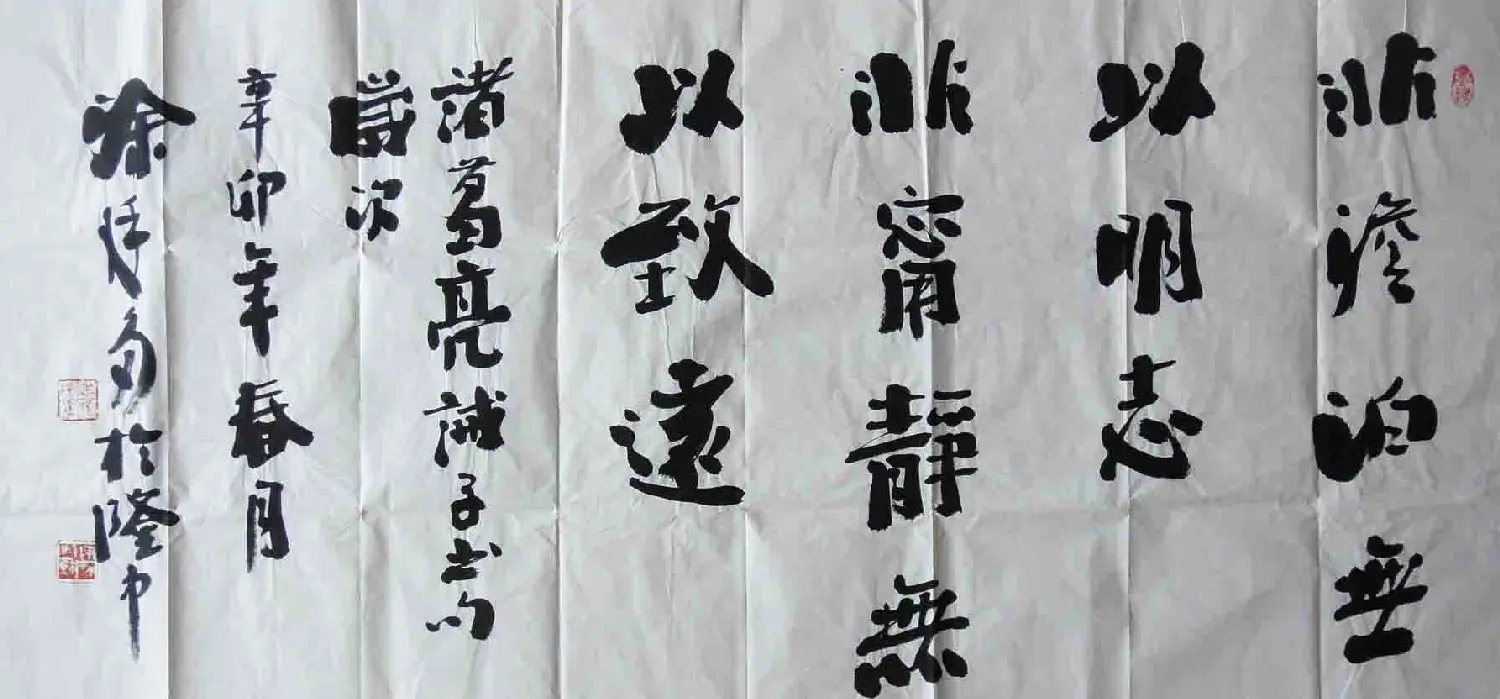 非澹泊無
以明志
非甯靜無
以致遠
諸葛亮誡子書句
歲次
辛卯年春月
涂廷多於隆中